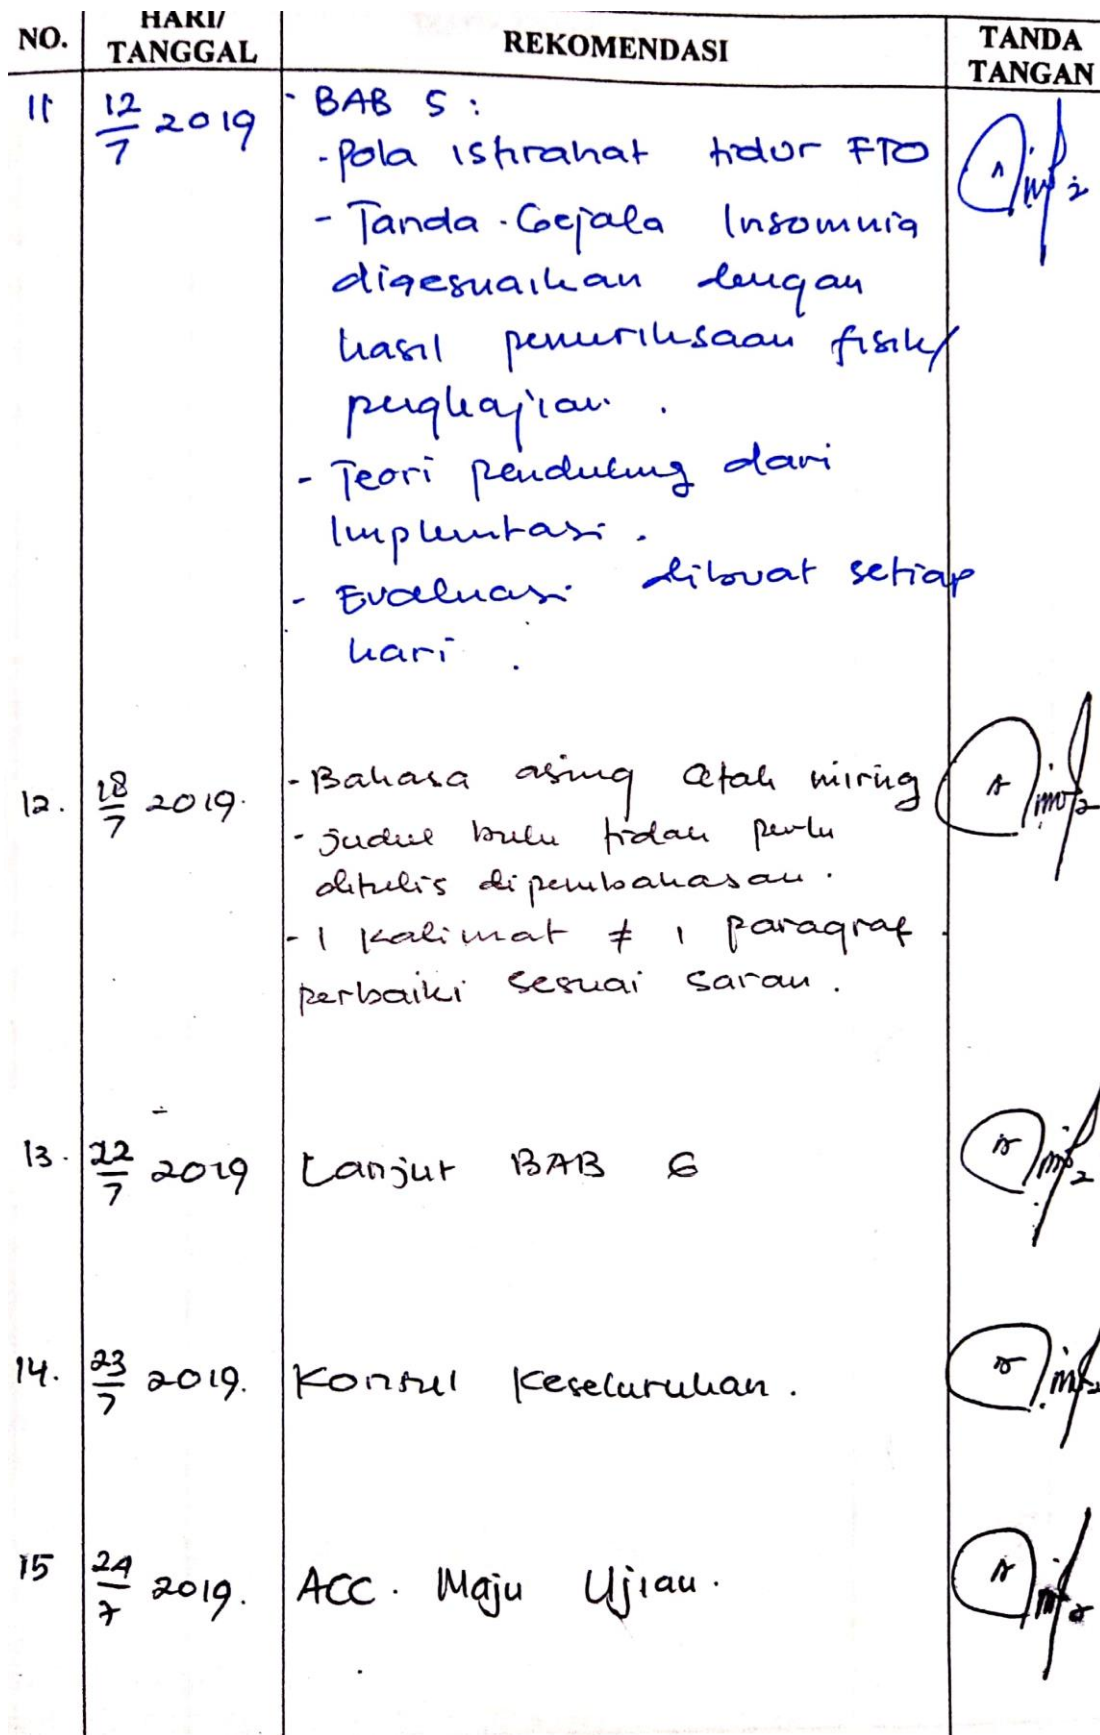 NO. HARI/ TANGGAL REKOMENDASI TANDA TANGAN
11 12/7 2019 - BAB 5 :
- Pola istirahat tidur FTO
- Tanda. Gejala Insomnia
disesuaikan dengan
hasil pemeriksaan fisik/
pengkajian .
- Teori pendukung dari
Implementasi .
- Evaluasi dibuat setiap
hari .
12. 18/7 2019. - Bahasa asing cetak miring
- Judul buku tidak perlu
ditulis dipembahasan .
- 1 Kalimat ≠ 1 paragraf .
perbaiki sesuai saran .
13. 22/7 2019 Lanjut BAB 6
14. 23/7 2019. Konsul Keseluruhan .
15 24/7 2019. ACC . Maju Ujian .